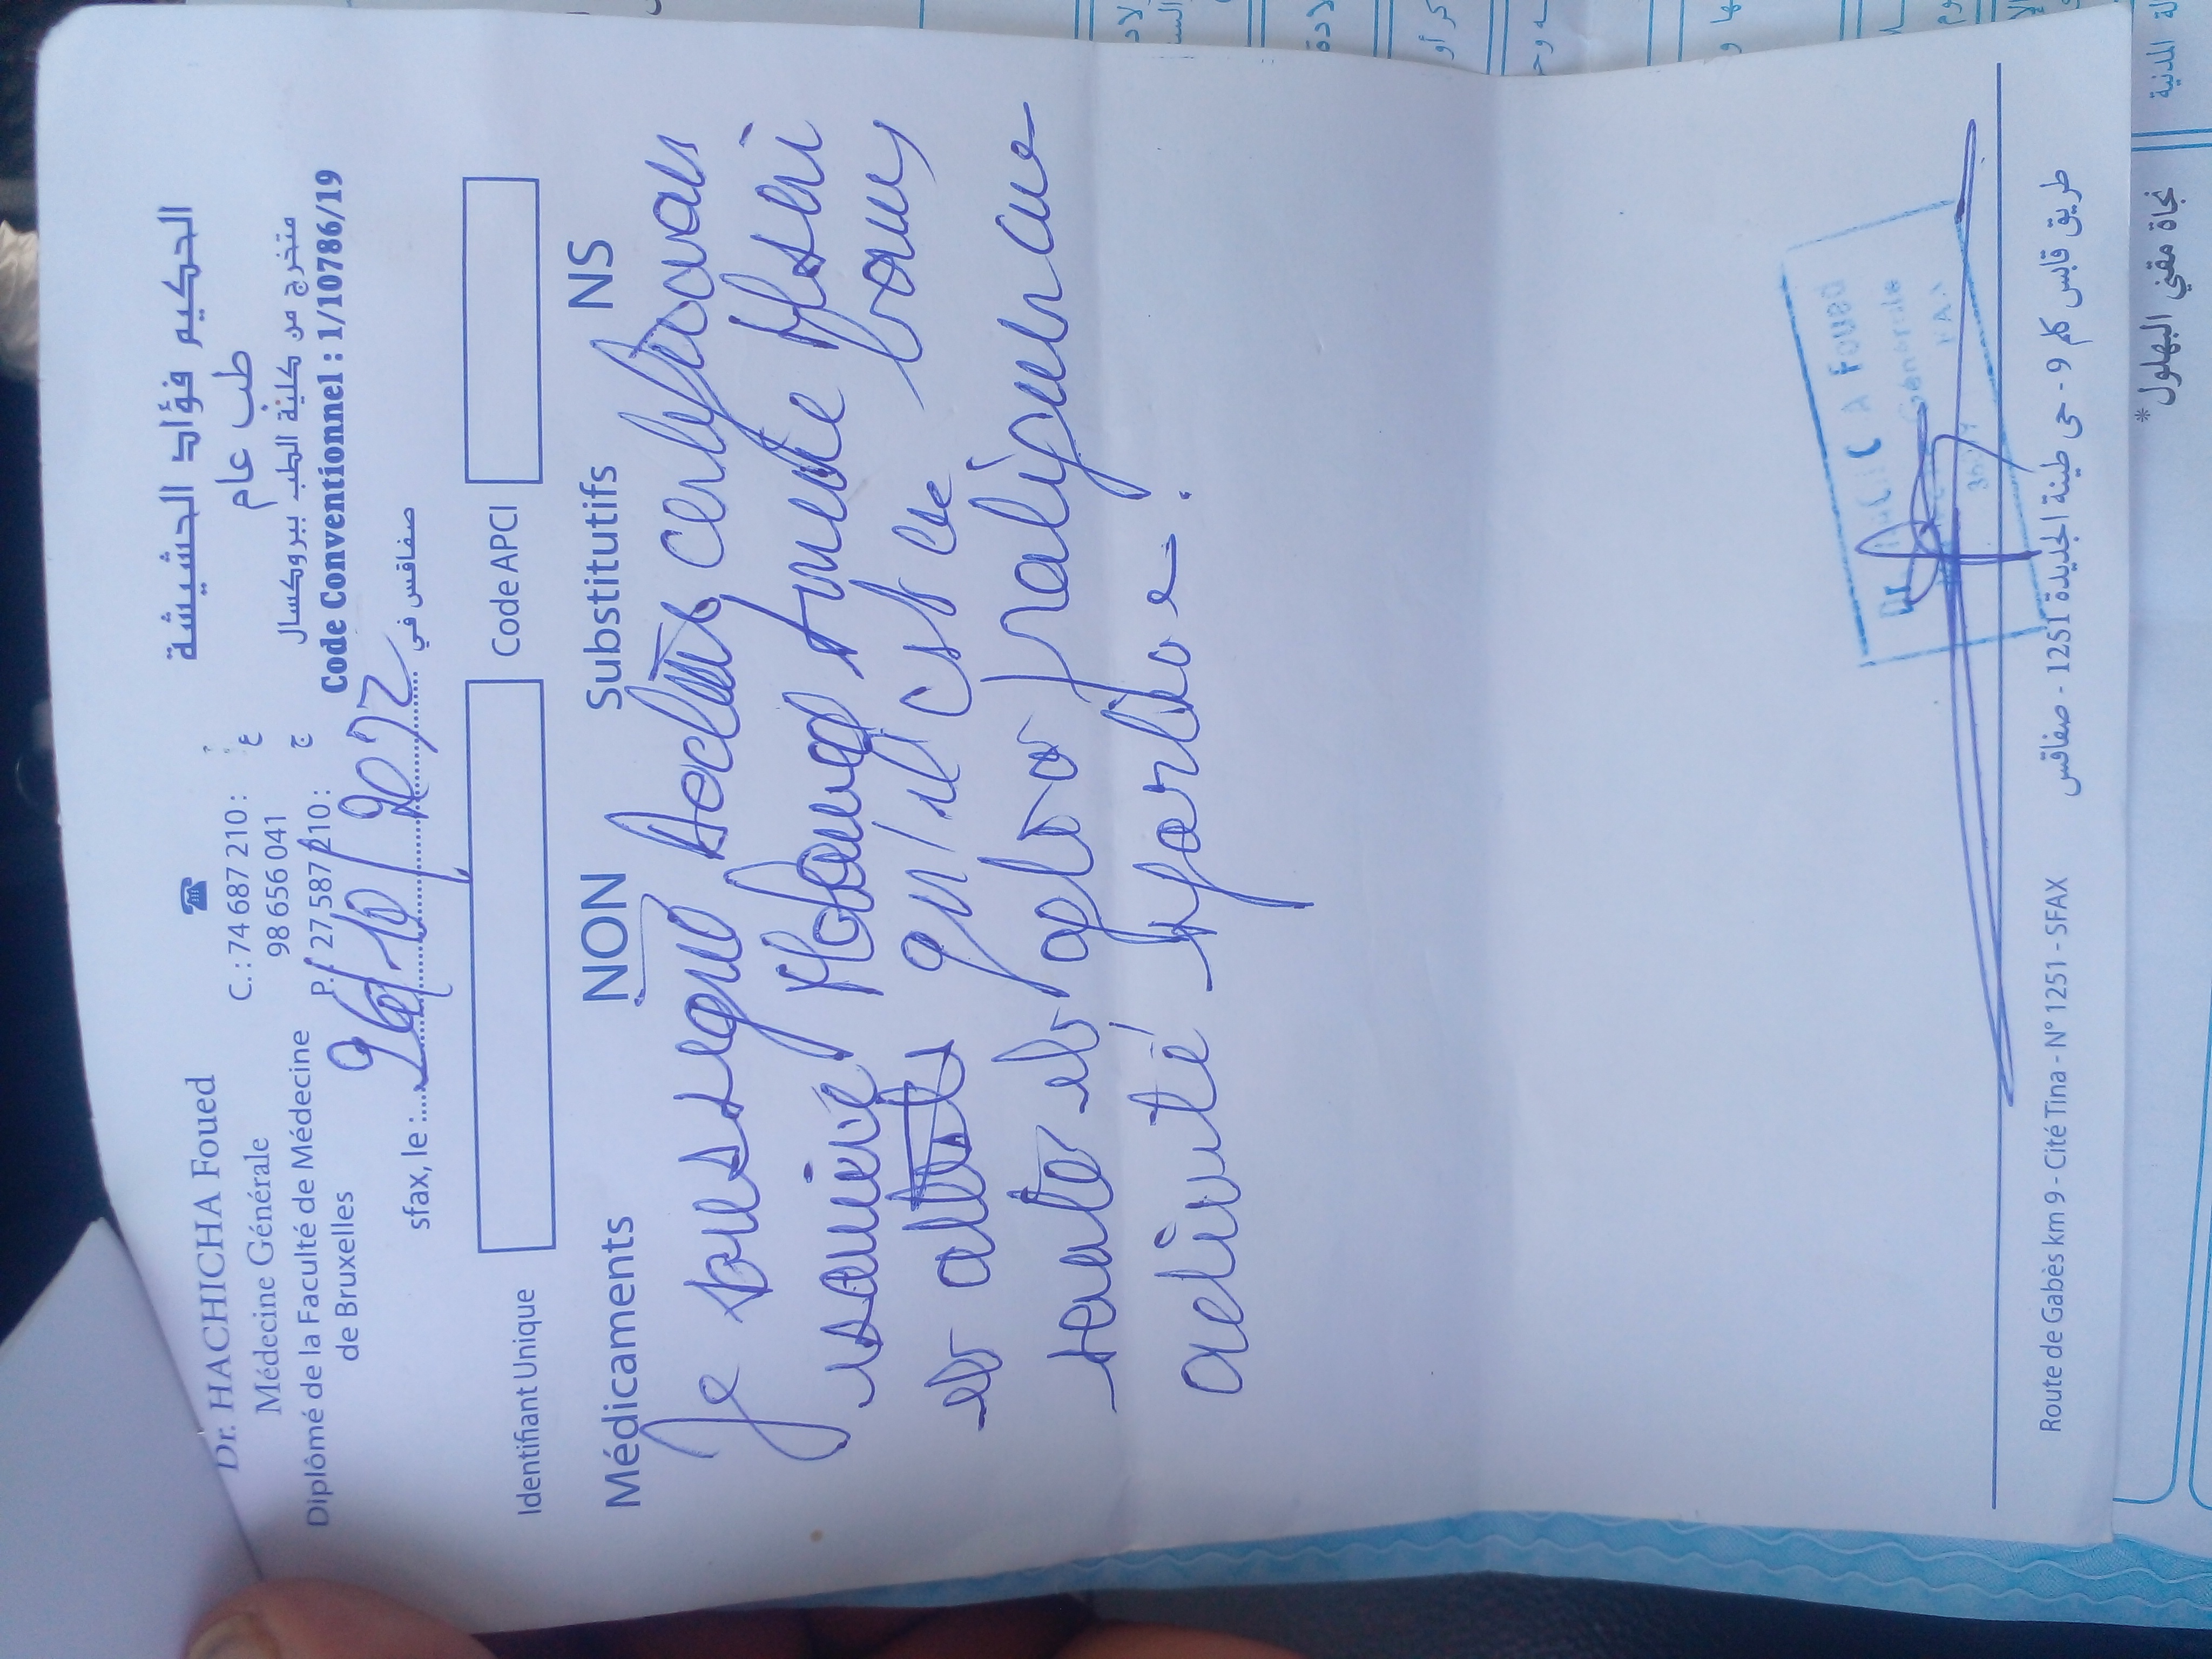 Dr. HACHICHA Foued
Médecine Générale
Diplômé de la Faculté de Médecine
de Bruxelles
☎
C. : 74 687 210 : ع
98 656 041
P. : 27 587 210 : ج
الحكيم فؤاد الحشيشة
طب عام
متخرج من كلية الطب ببروكسال
Code Conventionnel : 1/10786/19
sfax, le : 26/10/2022 صفاقس في
Identifiant Unique
Code APCI
Médicaments NON Substitutifs NS
Je soussigné Docteur certifie avoir
examiné Mohamed
et atteste qu'il est en bonne
santé et apte à pratiquer une
activité sportive.
Foued
Générale
Route de Gabès km 9 - Cité Tina - N° 1251 - SFAX
طريق قابس كلم 9 - حي طينة الجديدة 1251 - صفاقس
نجاة مقني البهلول*